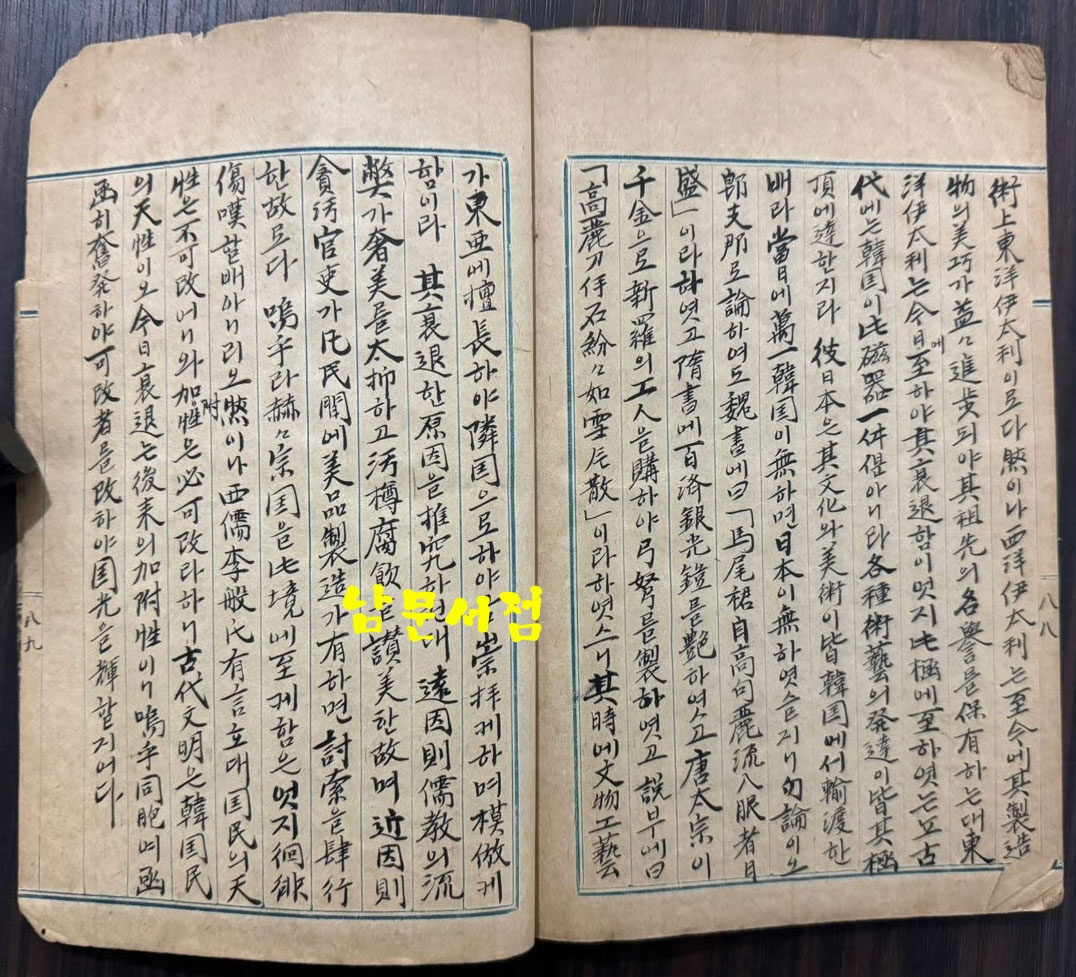 術上東洋伊太利이로다然이나西洋伊太利는至今에其製造
物의美巧가益々進步되야其祖先의名譽를保有하는대東
洋伊太利는今日에至하야其衰退함이엇지此極에至하엿는고古
代에는韓国이此磁器一件偲아니라各種術藝의発達이皆其極
頂에達한지라 彼日本은其文化와美術이皆韓国에서輸渡한
배라當日에萬一韓国이無하면日本이無하엿슬지니勿論이오
郎支那로論하여도魏書에曰「馬尾裙自高句麗流入眼者日
盛」이라하엿고隋書에百済銀光鎧를艶하엿고唐太宗이
千金으로新羅의工人을購하야弓弩를製하엿고說部에曰
「高麗刀伴石紛々如雪片散」이라하엿스니其時에文物工藝
八八
가東亜에擅長하야隣国으로하야 崇拜케하며模倣케
함이라 其衰退한原因을推究하 대 遠因則儒教의流
弊가奢美를太抑하고汚樽腐飲 讃美한故며近因則
貪汚官吏가凡民間에美品製造가有하면討索을肆行
한故로다 嗚乎라赫々宗国을此境에至케함은엇지徊徘
傷嘆할배아니리오然이나西儒李般氏有言호대国民의天
性은不可改어니와加附性은必可改라하니古代文明은韓国民
의天性이오今日衰退는後来의加附性이니嗚乎同胞여函
函히奮発하야可改者를改하야国光을輝할지어다
八九
남문서점